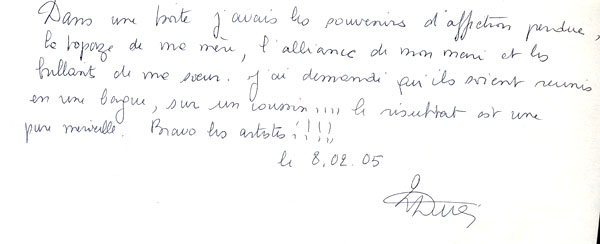 Dans une boîte j'avais les souvenirs d'affection perdue,
la topaze de ma mère, l'alliance de mon mari et les
brillant de ma sœur. j'ai demandé qu'ils soient reunis
en une bague, sur un coussin !!!! le résultat est une
pure merveille. Bravo les artistes !!!!
le 8.02.05